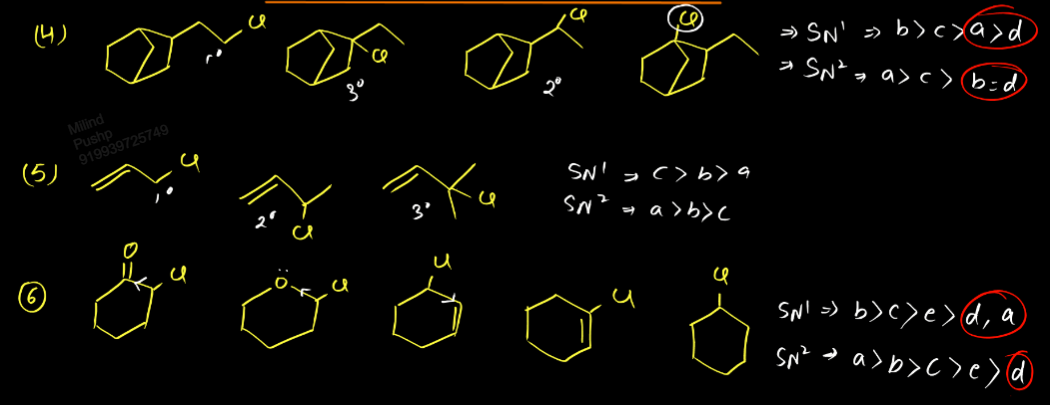 (4) Cl Cl Cl Cl ⇒ SN¹ ⇒ b > c > a > d
1° 3° 2° ⇒ SN² ⇒ a > c > b = d
Milind
Pushp
919939725749
(5) Cl Cl Cl SN¹ ⇒ c > b > a
1° 2° 3° SN² → a > b > c
6 O Cl Ö Cl Cl Cl Cl SN¹ ⇒ b > c > e > d, a
SN² → a > b > c > e > d